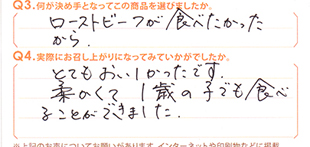 Q3.何が決め手となってこの商品を選びましたか。
ローストビーフが食べたかった
から.
Q4.実際にお召し上がりになってみていかがでしたか。
とてもおいしかったです.
柔かくて1歳の子でも食べ
ることができました.
※上記のお声についてお願いがあります。インターネットや印刷物などに掲載